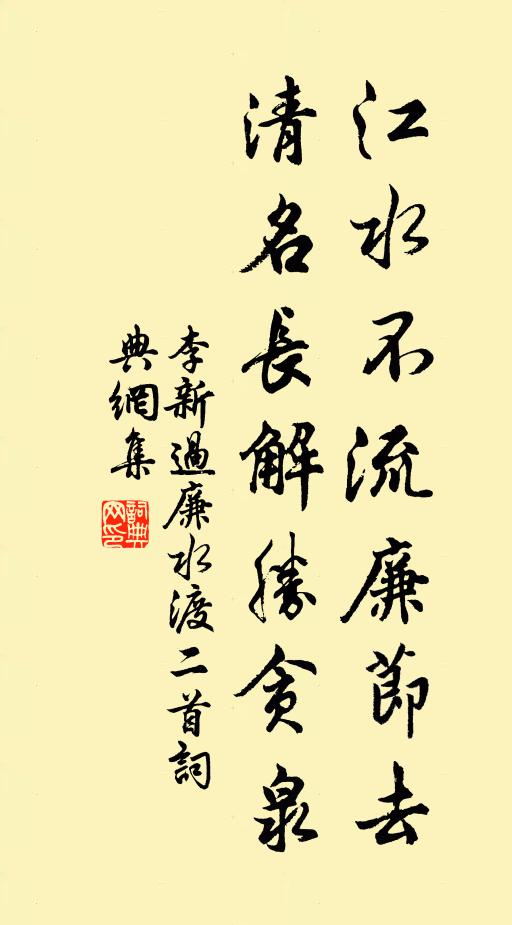 江水不流廉節去
清名長解勝貪泉
李新過廉水渡二首詞
典網集
詞典
网印